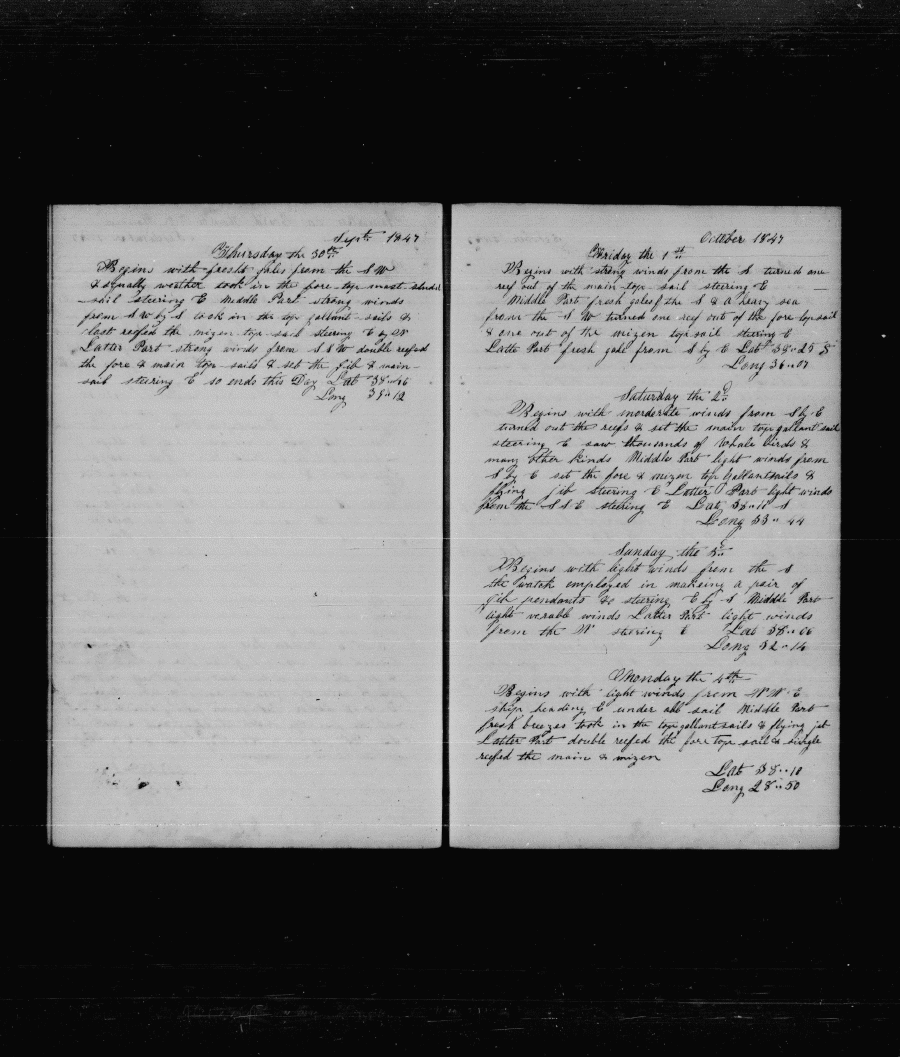 Sept 1847
Thursday the 30th
Begins with fresh gales from the S W
& squally weather took in the fore top mast
sail steering E Middle Part strong winds
from S W by S took in the top gallant sails &
close reefed the mizen top sail steering E by N
Latter Part strong winds from S S W double reefed
the fore & main top sails & set the jib & main
sail steering E so ends this Day Lat 38
Long 39 12
October 1847
Friday the 1st
Begins with strong winds from the S turned one
reef out of the main top sail steering E
Middle Part fresh gales from the S & a heavy sea
from the S W turned one reef out of the fore top sail
& one out of the mizen top sail steering E
Latte Part fresh gale from S by E Lat 38 25 S
Long 36 07
Saturday the 2d
Begins with morderate winds from S by E
turned out the reefs & set the main top gallant sail
steering E saw thousands of Whale birds &
many other kinds Middle Part light winds from
S by E set the fore & mizen top Gallantsails &
flying jib steering E Latter Part light winds
from the S S E steering E Lat 38 11 S
Long 33 44
Sunday the 3d
Begins with light winds from the S
the watch employed in makeing a pair of
jib pendants &c steering E by S Middle Part
light verable winds Latter Part light winds
from the W steering E Lat 38 06
Long 32 14
Monday the 4th
Begins with light winds from N N E
ship heading E under all sail Middle Part
fresh breezes took in the top gallant sails & flying jib
Latter Part double reefed the fore top sail & single
reefed the main & mizen
Lat 38 10
Long 28 50